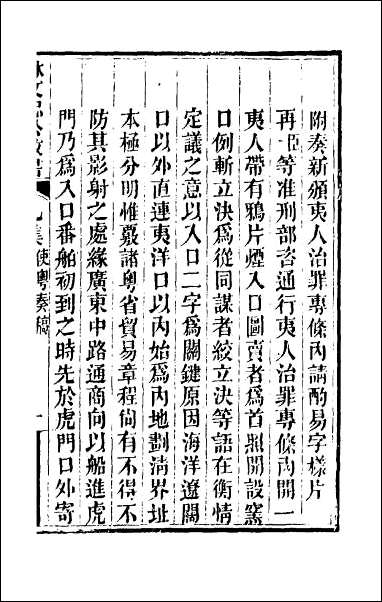 附奏新頒夷人治罪專條內請酌易字樣片
再臣等准刑部咨通行夷人治罪專條內開一
夷人帶有鴉片煙入口圖賣者爲首照開設窰
口例斬立決爲從同謀者絞立決等語在衡情
定議之意以入口二字爲關鍵原因海洋遼闊
口以外直連夷洋口以內始爲內地劃清界址
本極分明惟覈諸粵省貿易章程尙有不得不
防其影射之處緣廣東中路通商向以船進虎
門乃爲入口番舶初到之時先於虎門口外寄
使粵奏稿